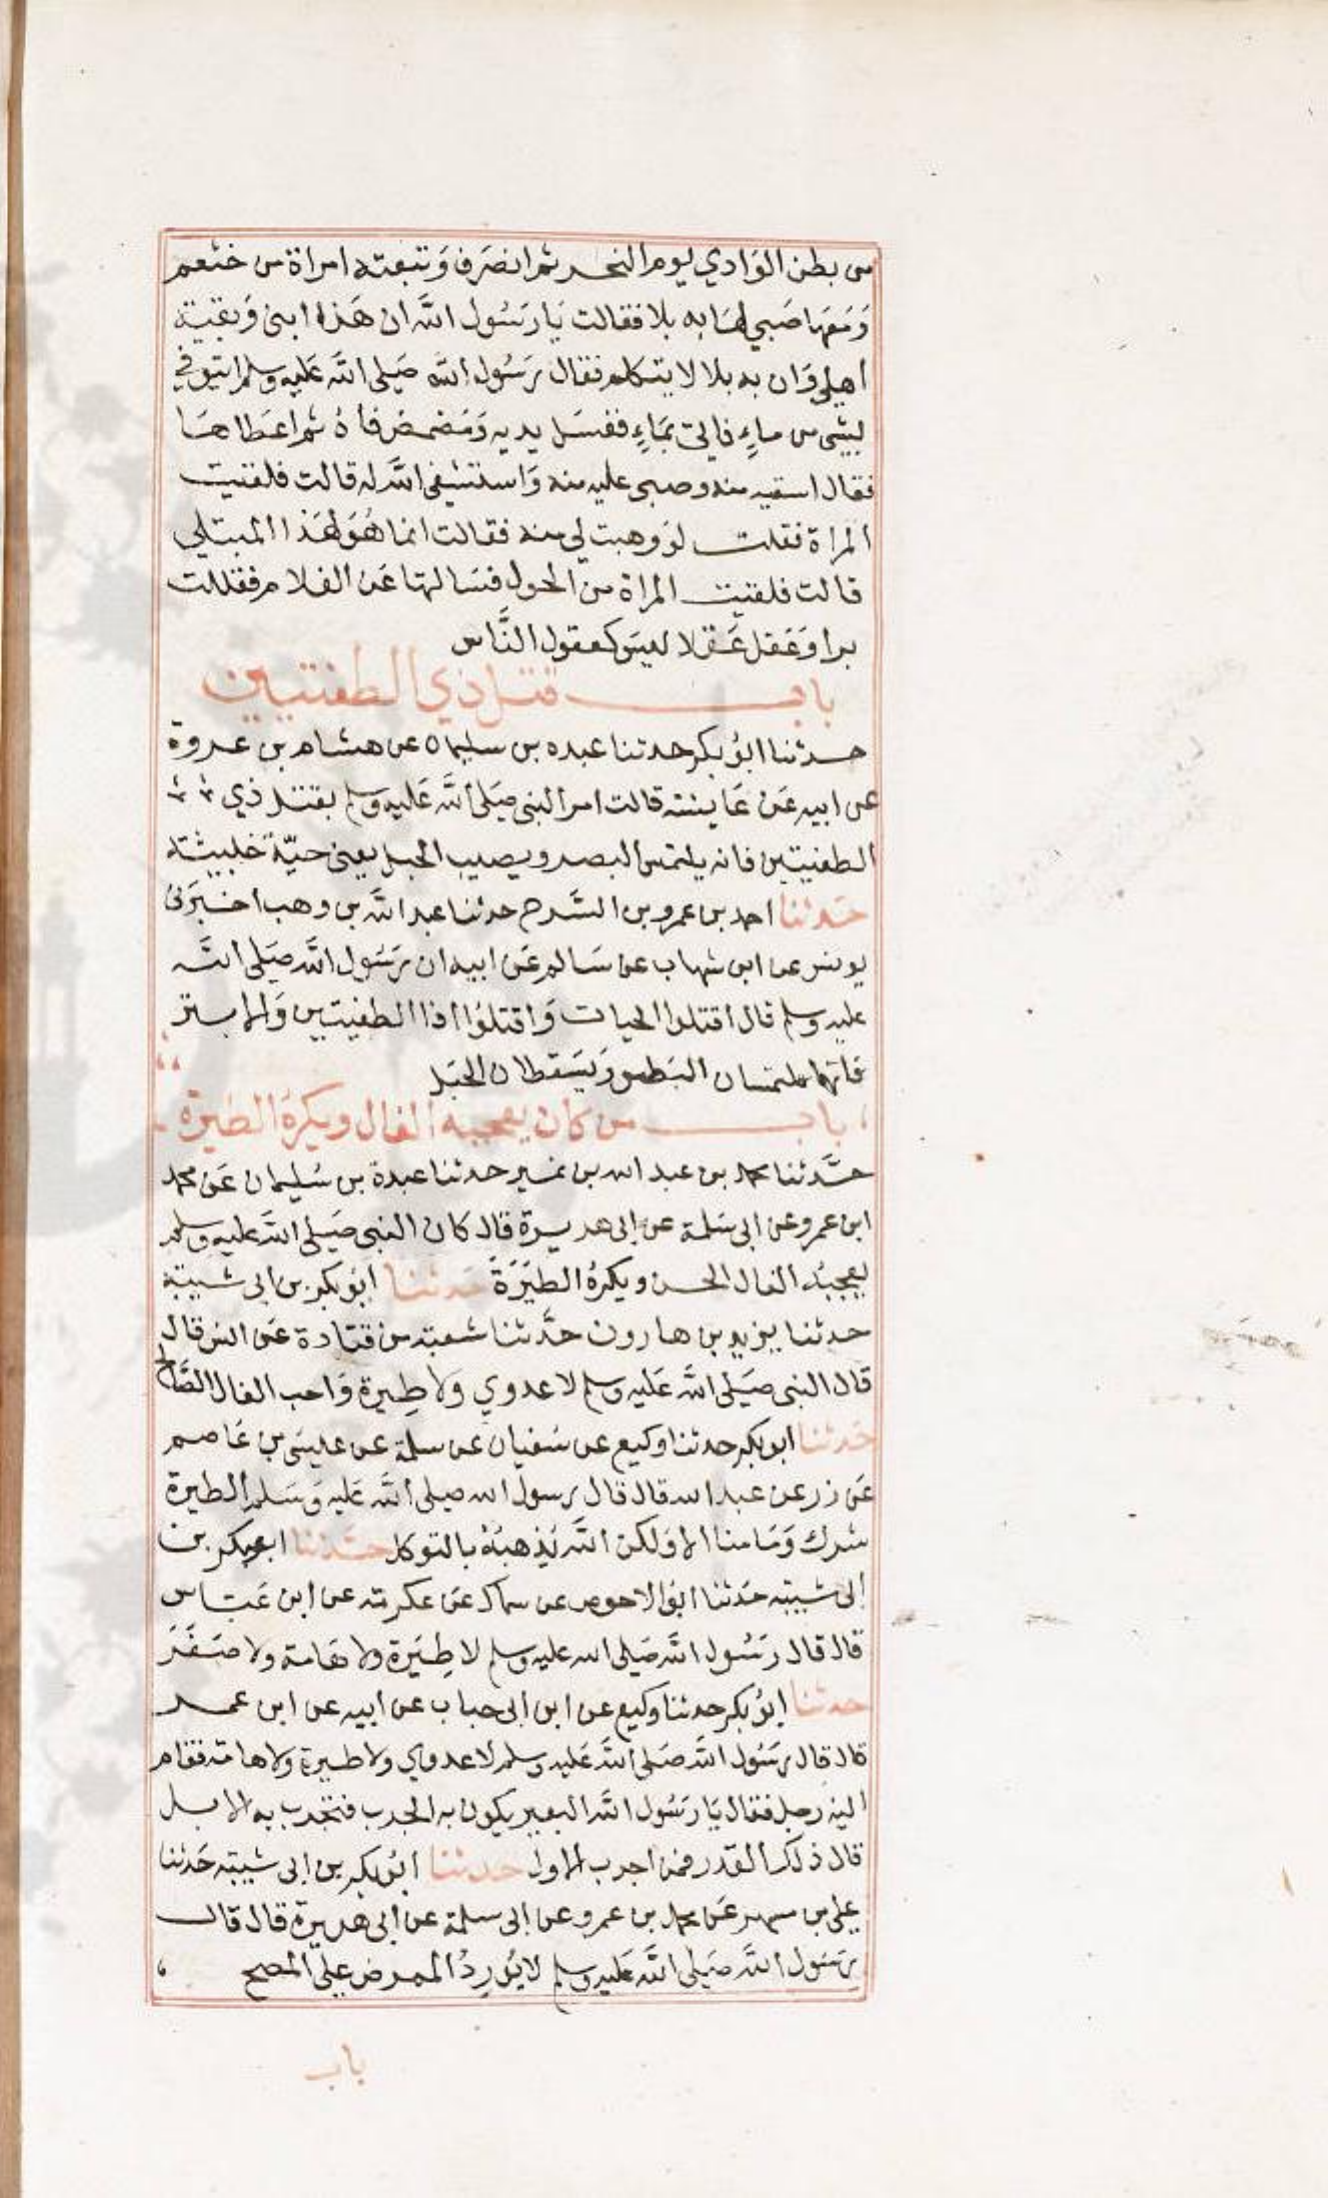 من بطن الوادي يوم النحر ثم انصرف وتبعته امراة من خثعم
ومعها صبي لها به بلا فقالت يا رسول الله ان هذا ابني وبقية
أهلي وان به بلا لا يتكلم فقال رسول الله صلى الله عليه وسلم ايتوني
بشي من ماء فاتي بماء فغسل يديه ومضمض فاه ثم اعطاها
فقال اسقيه منه وصبي عليه منه واستشفي الله له قالت فلقيت
المراة فقلت لو وهبت لي منه فقالت انما هو لهذا المبتلي
قالت فلقيت المراة من الحول فسالتها عن الغلام فقالت
برا وعقل عقلا ليس كعقول الناس
باب قتل ذي الطفيتين
حدثنا ابو بكر حدثنا عبده بن سليمان عن هشام بن عروة
عن ابيه عن عايشة قالت امر النبي صلى الله عليه وسلم بقتل ذي
الطفيتين فانه يلتمس البصر ويصيب الحبل يعني حيّة خبيثة
حدثنا احمد بن عمرو بن السرح حدثنا عبد الله بن وهب اخبرني
يونس عن ابن شهاب عن سالم عن ابيه ان رسول الله صلى الله
عليه وسلم قال اقتلوا الحيات واقتلوا ذا الطفيتين والابتر
فانهما يلتمسان البصر ويسقطان الحبل
باب من كان يعجبه الفال ويكره الطيرة
حدثنا محمد بن عبد الله بن نمير حدثنا عبدة بن سليمان عن محمد
ابن عمرو عن ابي سلمة عن ابي هريرة قال كان النبي صلى الله عليه وسلم
يعجبه الفال الحسن ويكره الطيرة حدثنا ابو بكر بن ابي شيبة
حدثنا يزيد بن هارون حدثنا شعبة عن قتادة عن انس قال
قال النبي صلى الله عليه وسلم لا عدوي ولا طيرة واحب الفال الصالح
حدثنا ابو بكر حدثنا وكيع عن سفيان عن سلمة عن عيسى بن عاصم
عن زر عن عبد الله قال قال رسول الله صلى الله عليه وسلم الطيرة
شرك وما منا الا ولكن الله يذهبه بالتوكل حدثنا ابو بكر بن
ابي شيبة حدثنا ابو الاحوص عن سماك عن عكرمة عن ابن عباس
قال قال رسول الله صلى الله عليه وسلم لا طيرة ولا هامة ولا صفر
حدثنا ابو بكر حدثنا وكيع عن ابن ابي حباب عن ابيه عن ابن عمر
قال قال رسول الله صلى الله عليه وسلم لا عدوي ولا طيرة ولا هامة فقام
اليه رجل فقال يا رسول الله البعير يكون به الجرب فتجرب به الابل
قال ذلك القدر فمن اجرب الاول حدثنا ابو بكر بن ابي شيبة حدثنا
علي بن مسهر عن محمد بن عمرو عن ابي سلمة عن ابي هريرة قال قال
رسول الله صلى الله عليه وسلم لا يورد الممرض على المصح
باب